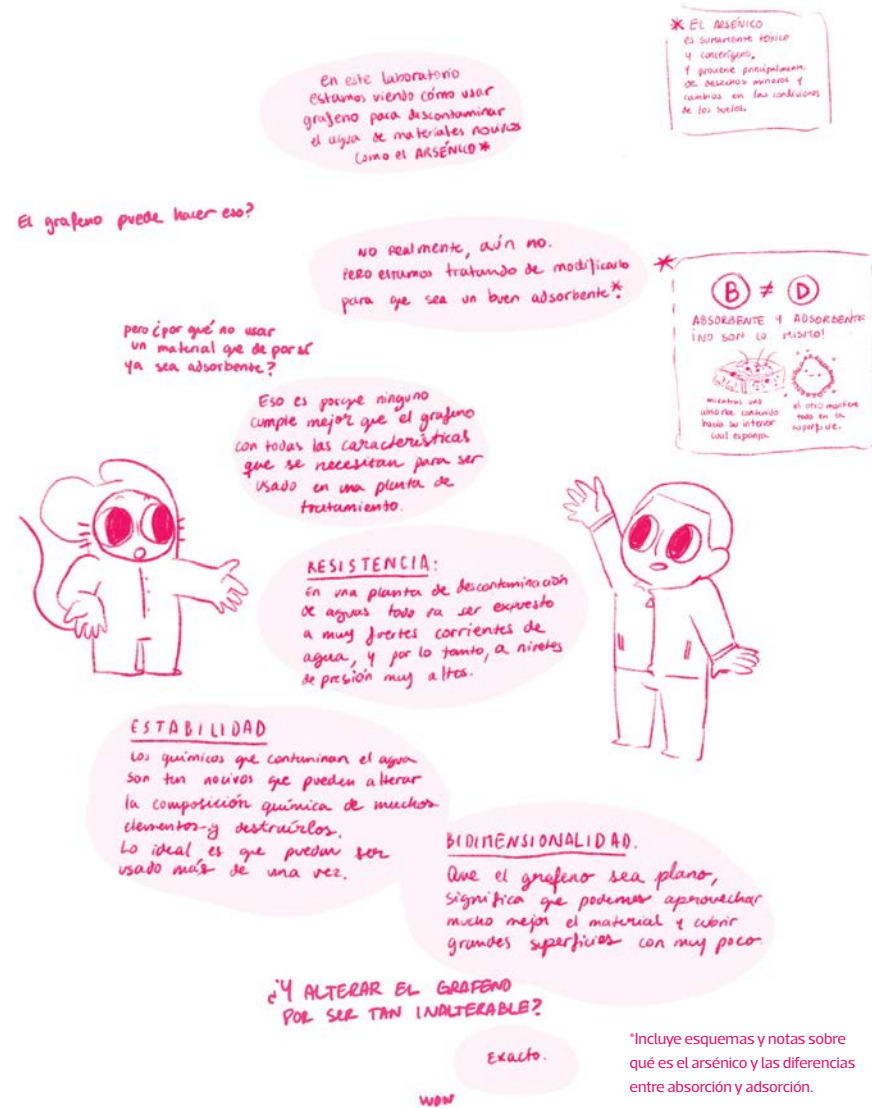 en este laboratorio
estamos viendo cómo usar
grafeno para descontaminar
el agua de materiales nocivos
como el ARSÉNICO*
* EL ARSÉNICO
es sumamente tóxico
y cancerígeno,
y proviene principalmente
de desechos mineros y
cambios en las condiciones
de los suelos.
El grafeno puede hacer eso?
NO realmente, aún no.
Pero estamos tratando de modificarlo
para que sea un buen adsorbente*.
*
B ≠ D
ABSORBENTE Y ADSORBENTE
¡NO SON LO MISMO!
mientras uno
absorbe contenido
hacia su interior
cual esponja,
el otro mantiene
todo en la
superficie.
pero ¿por qué no usar
un material que de por sí
ya sea adsorbente?
Eso es porque ninguno
cumple mejor que el grafeno
con todas las características
que se necesitan para ser
usado en una planta de
tratamiento.
RESISTENCIA:
En una planta de descontaminación
de aguas todo va ser expuesto
a muy fuertes corrientes de
agua, y por lo tanto, a niveles
de presión muy altos.
ESTABILIDAD
Los químicos que contaminan el agua
son tan nocivos que pueden alterar
la composición química de muchos
elementos y destruírlos.
Lo ideal es que puedan ser
usado más de una vez.
BIDIMENSIONALIDAD.
Que el grafeno sea plano,
significa que podemos aprovechar
mucho mejor el material y cubrir
grandes superficies con muy poco.
¿Y ALTERAR EL GRAFENO
POR SER TAN INALTERABLE?
Exacto.
WOW
*Incluye esquemas y notas sobre
qué es el arsénico y las diferencias
entre absorción y adsorción.